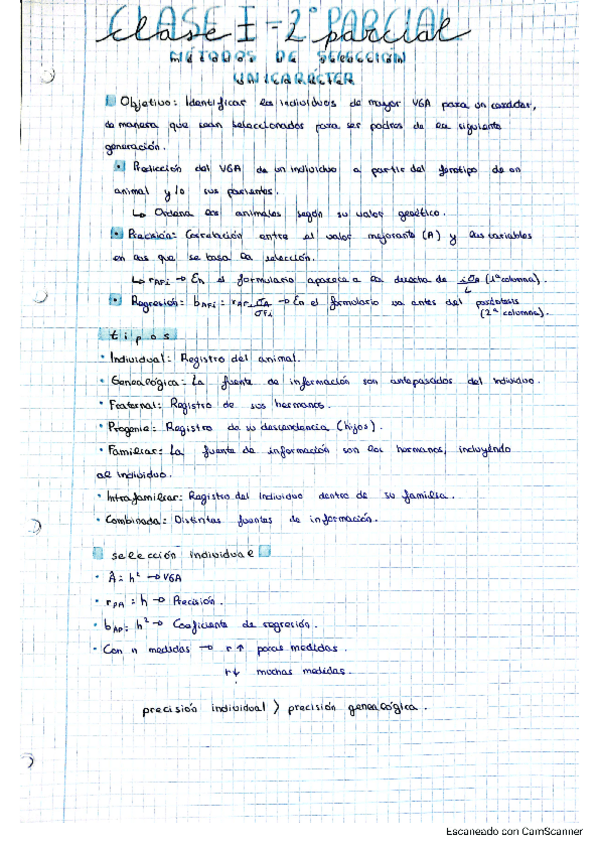 CLASE I - 2º PARCIAL
clase I - 2º parcial
MÉTODOS DE SELECCIÓN
UNICARÁCTER
Objetivo: Identificar los individuos de mayor VGA para un carácter,
de manera que sean seleccionados para ser padres de la siguiente
generación.
• Predicción del VGA de un individuo a partir del fenotipo de un
animal y/o sus parientes.
↳ Ordena los animales según su valor genético.
• Precisión: Correlación entre el valor mejorante (A) y las variables
en las que se basa la selección.
↳ rAPi → En el formulario aparece a la derecha de iσA/L (1ª columna).
• Regresión: bAPi = rAPi σA/σPi → En el formulario va antes del paréntesis
(2ª columna).
tipos
• Individual: Registro del animal.
• Genealógica: La fuente de información son antepasados del individuo.
• Fraternal: Registro de sus hermanos.
• Progenie: Registro de su descendencia (hijos).
• Familiar: La fuente de información son los hermanos, incluyendo
al individuo.
• Intrafamiliar: Registro del individuo dentro de su familia.
• Combinada: Distintas fuentes de información.
selección individual
• Â: h² → VGA
• rPA: h → Precisión.
• bAP: h² → Coeficiente de regresión.
• Con n medidas → r↑ pocas medidas.
r↓ muchas medidas.
precisión individual > precisión genealógica.
Escaneado con CamScanner